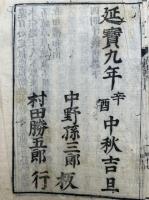 延寳九年辛酉中秋吉旦
中野孫三郎 板
村田勝五郎 行